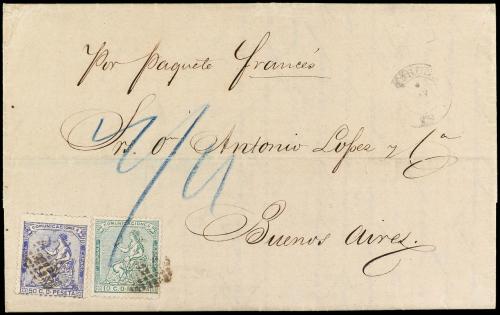 Por paquete francés
Srs. Dn Antonio Lopez y Ca
Buenos Aires.
COMUNICACIONES
50 C. D. PESETA
COMUNICACIONES
10 C. D. PESETA